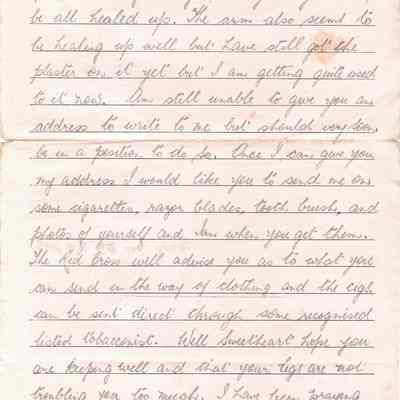 be all healed up. The arm also seems to
be healing up well but have still got the
plaster on it yet but I am getting quite used
to it now. Am still unable to give you an
address to write to me but should very soon
be in a position to do so. Once I can give you
my address I would like you to send me on
some cigarettes, razor blades, tooth brush, and
photos of yourself and when you get them.
The Red Cross will advise you as to what you
can send in the way of clothing and the cigs
can be sent direct through some recognised
listed tobacconist. Well Sweetheart hope you
are keeping well and that your legs are not
troubling you too much. I have been praying